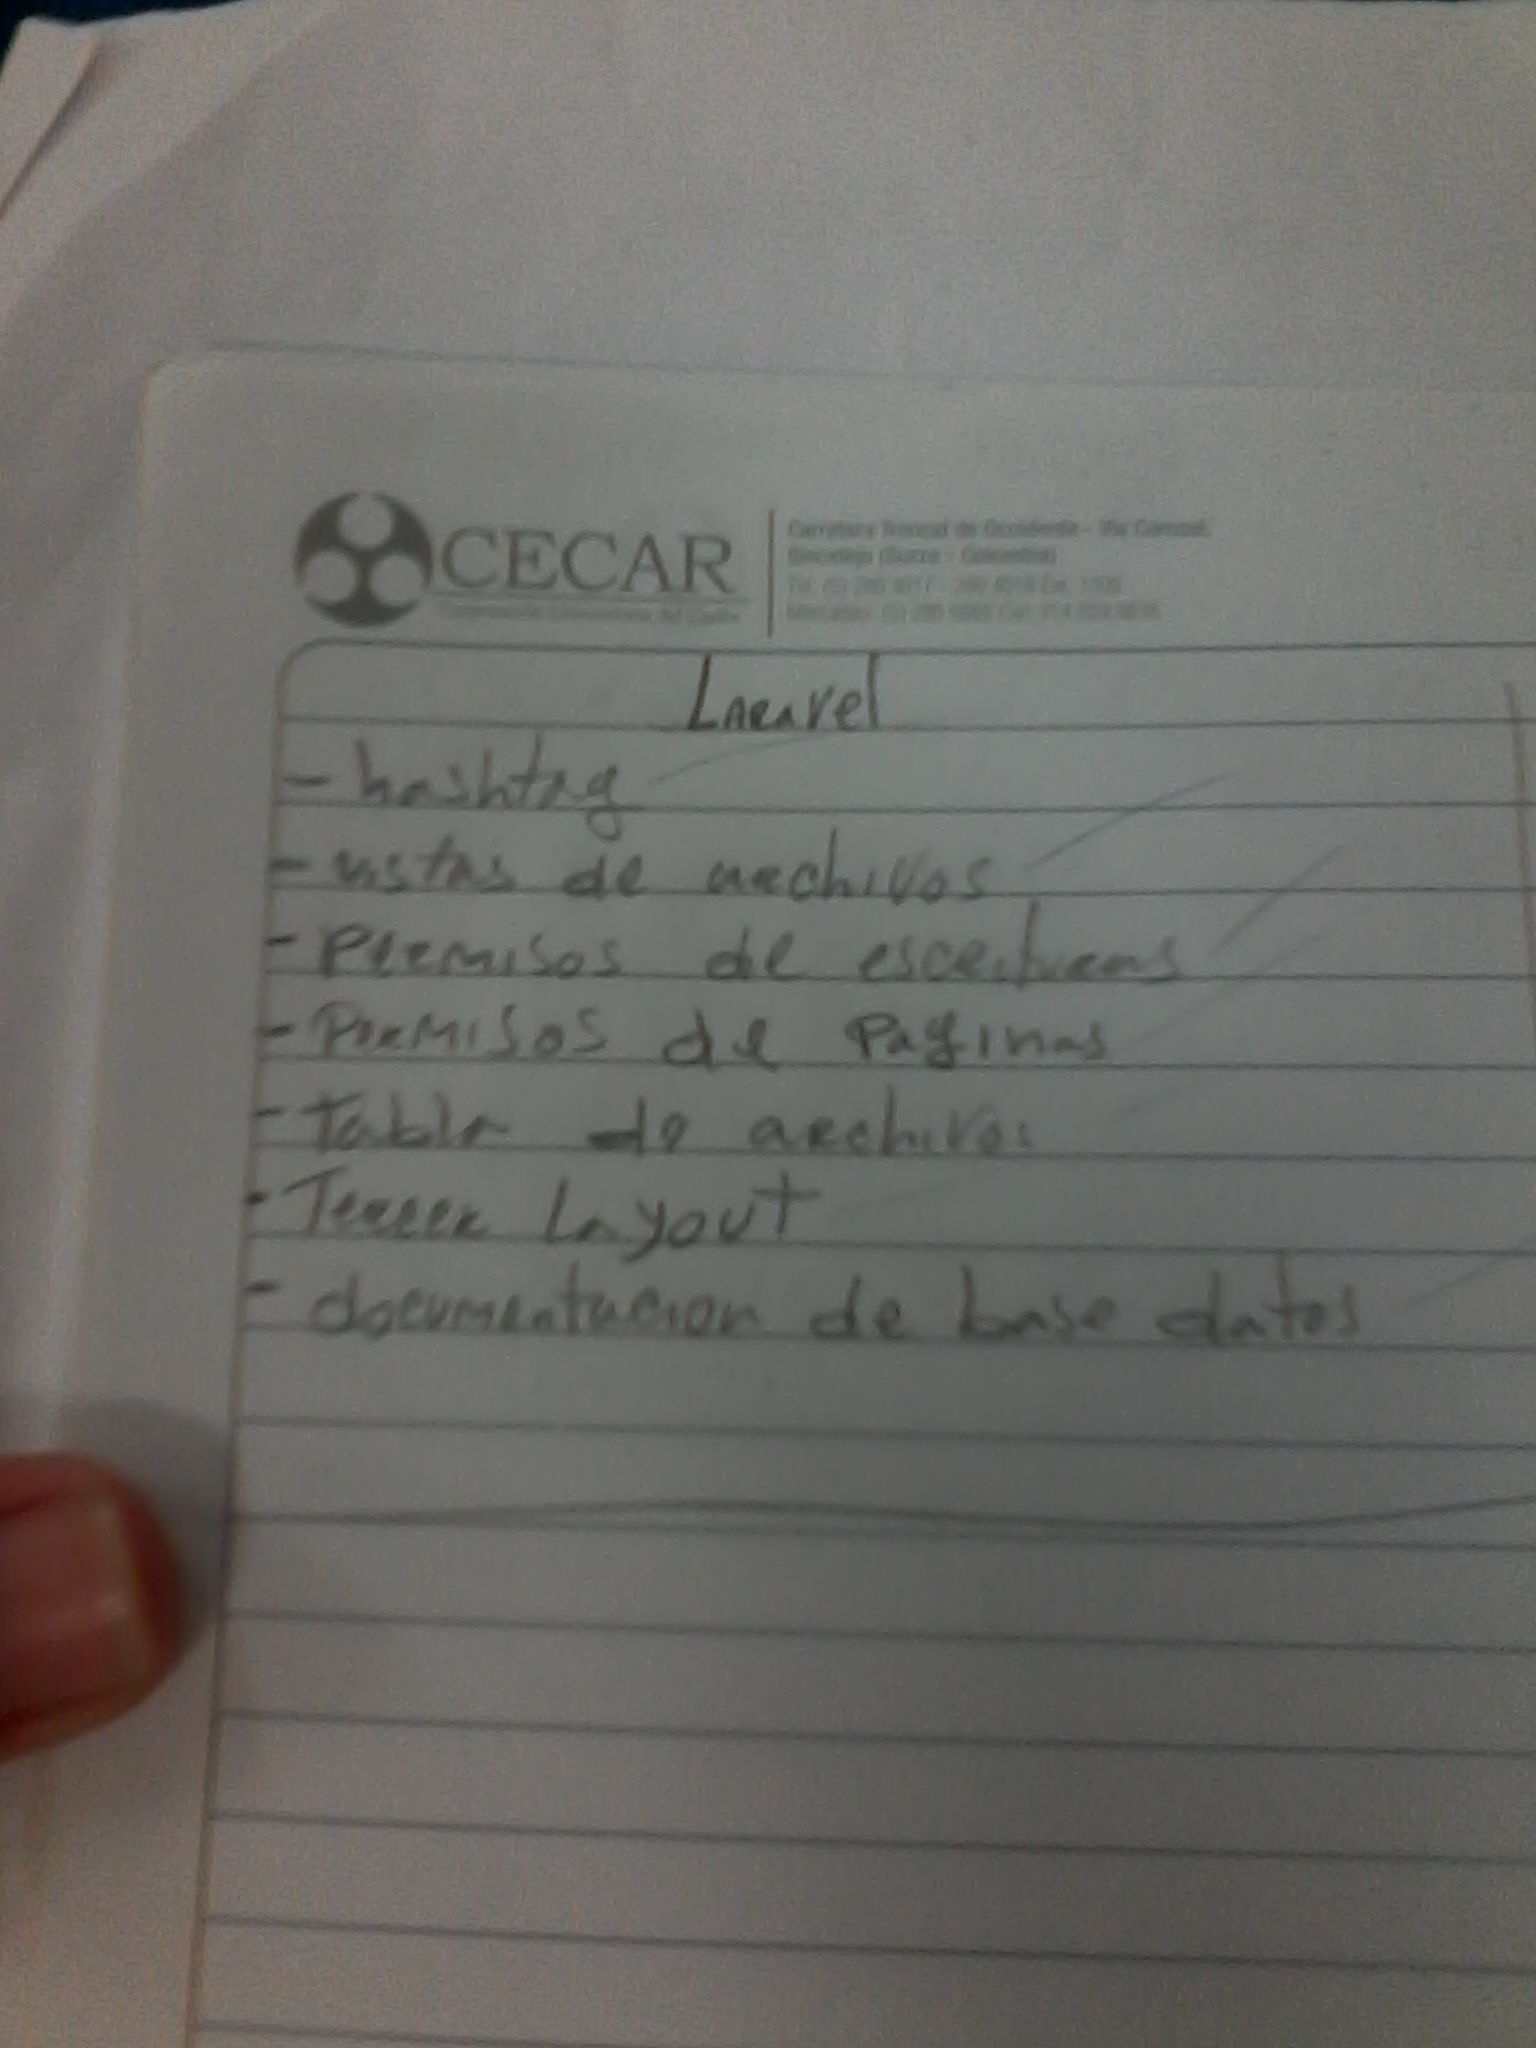 CECAR
Carretera Troncal de Occidente - Vía Corozal,
Sincelejo (Sucre - Colombia)
Laravel
- hashtag
- vistas de archivos
- Permisos de escrituras
- Permisos de Paginas
- Tabla de archivos
- Tercer Layout
- documentacion de base datos